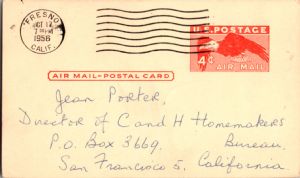 FRESNO
OCT 17
PM
1956
CALIF.
U.S. POSTAGE
4¢
AIR MAIL
AIR MAIL-POSTAL CARD
Jean Porter,
Director of C and H Homemakers
Bureau.
P.O. Box 3669.
San Francisco 5. California